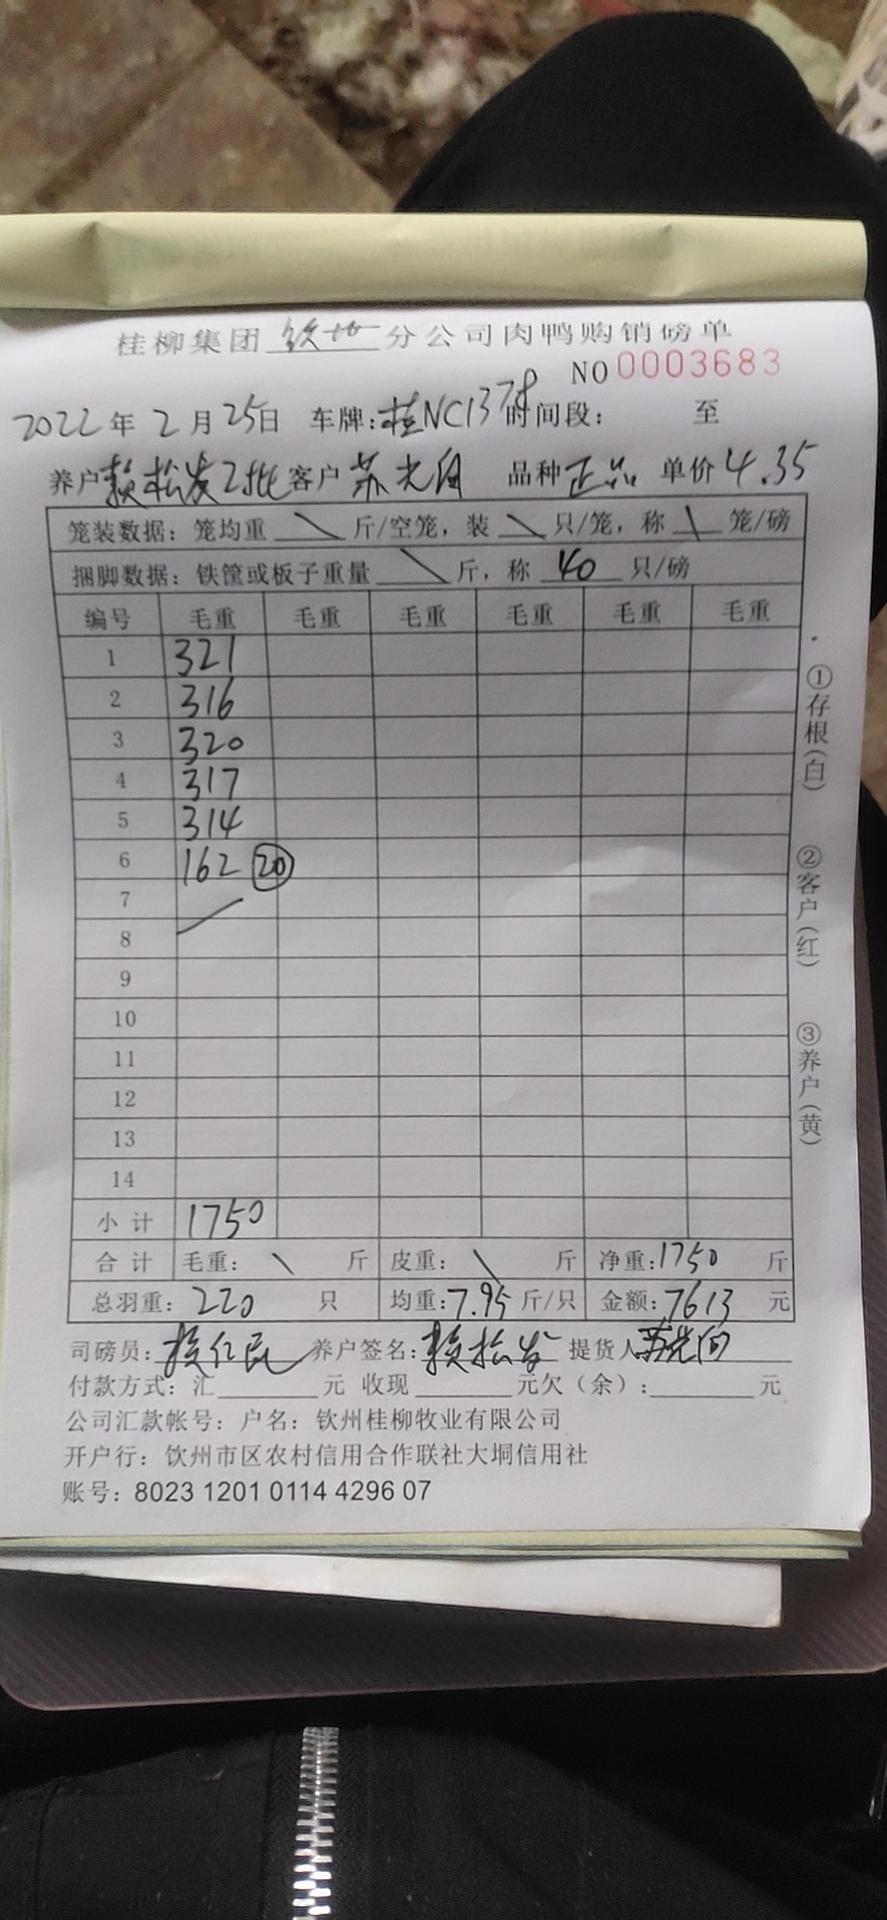 桂柳集团 钦州 分公司肉鸭购销磅单
NO 0003683
2022年 2月25日 车牌:桂NC1378 时间段: 至
养户 赖松发2批 客户 苏光 品种 正品 单价 4.35
笼装数据：笼均重 \ 斤/空笼，装 \ 只/笼，称 \ 笼/磅
捆脚数据：铁筐或板子重量 \ 斤，称 40 只/磅
编号 毛重 毛重 毛重 毛重 毛重 毛重
1 321
2 316
3 320
4 317
5 314
6 162 ⑳
7
8
9
10
11
12
13
14
小计 1750
合计 毛重： \ 斤 皮重： \ 斤 净重:1750 斤
总羽重： 220 只 均重:7.95 斤/只 金额:7613 元
司磅员: 养户签名:赖松发 提货人 苏光
付款方式：汇 元 收现 元欠（余）: 元
公司汇款帐号：户名：钦州桂柳牧业有限公司
开户行：钦州市区农村信用合作联社大垌信用社
账号：8023 1201 0114 4296 07
①存根(白)
②客户(红)
③养户(黄)